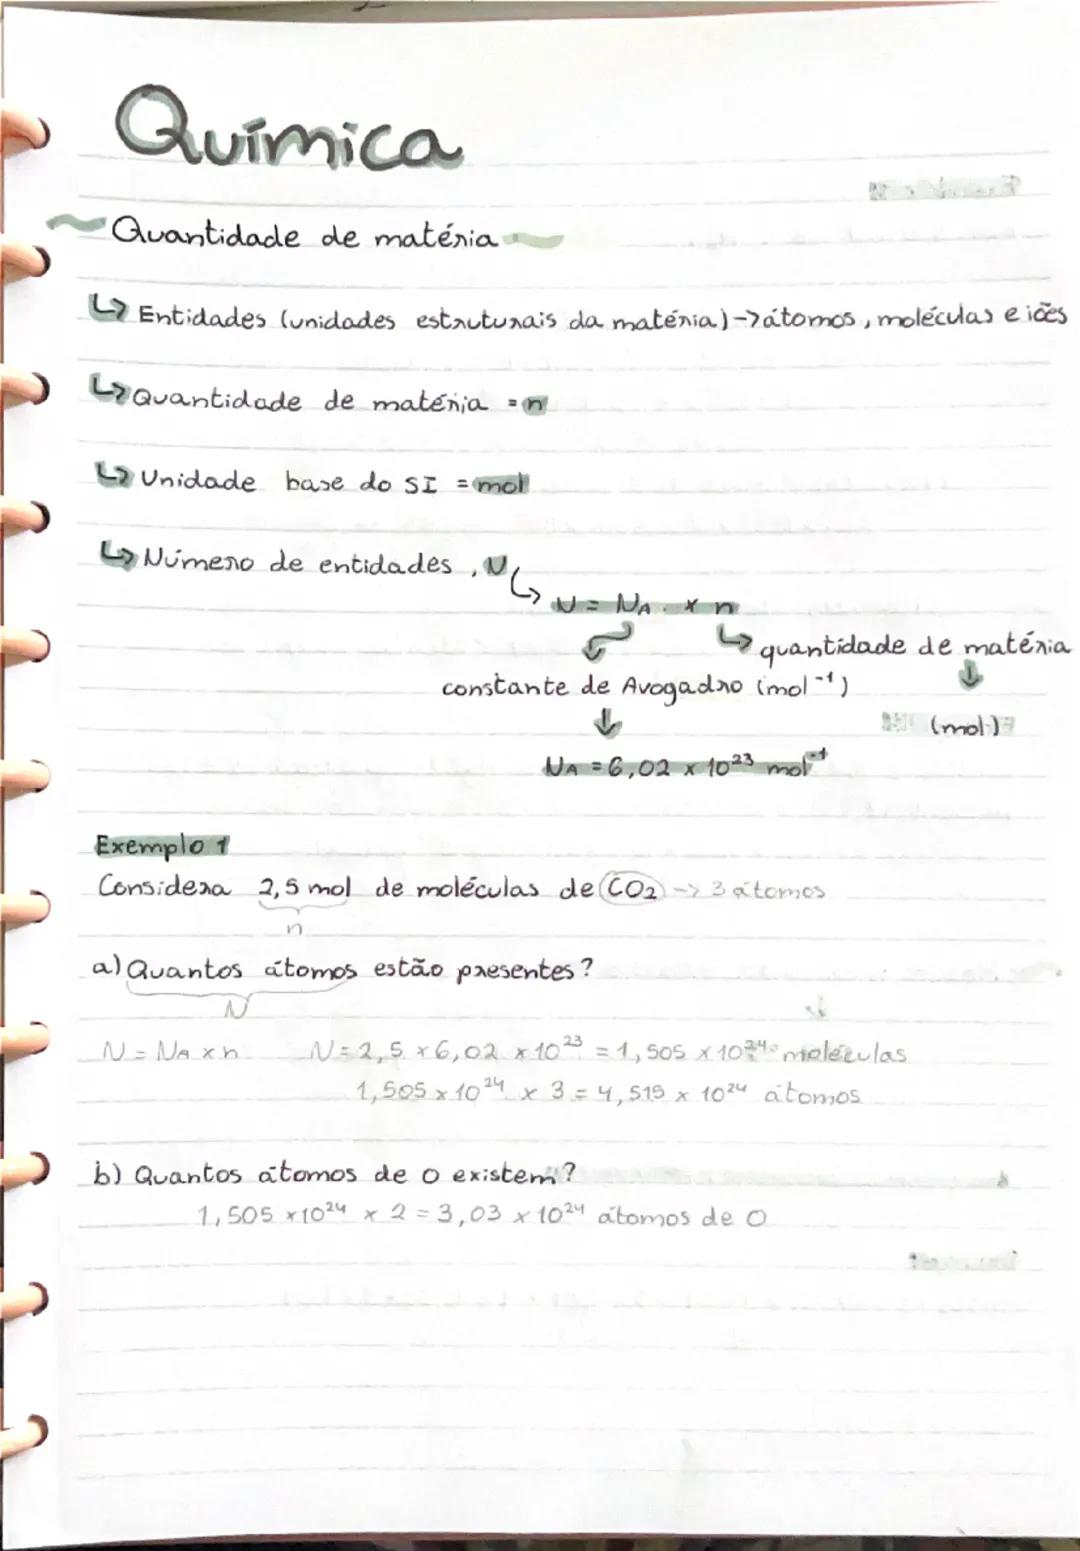 Química
Quantidade de matéria
↳ Entidades (unidades estruturais da matéria) -> átomos, moléculas e iões
↳ Quantidade de matéria = n
↳ Unidade base do SI = mol
↳ Número de entidades, N
↳ N = NA × n
↳ quantidade de matéria
constante de Avogadro (mol⁻¹)
(mol)
NA = 6,02 × 10²³ mol⁻¹
Exemplo 1
Considera 2,5 mol de moléculas de CO₂ -> 3 átomos
n
a) Quantos átomos estão presentes?
N
N = NA × n N = 2,5 × 6,02 × 10²³ = 1,505 × 10²⁴ moléculas
1,505 × 10²⁴ × 3 = 4,515 × 10²⁴ átomos
b) Quantos átomos de O existem?
1,505 × 10²⁴ × 2 = 3,03 × 10²⁴ átomos de O